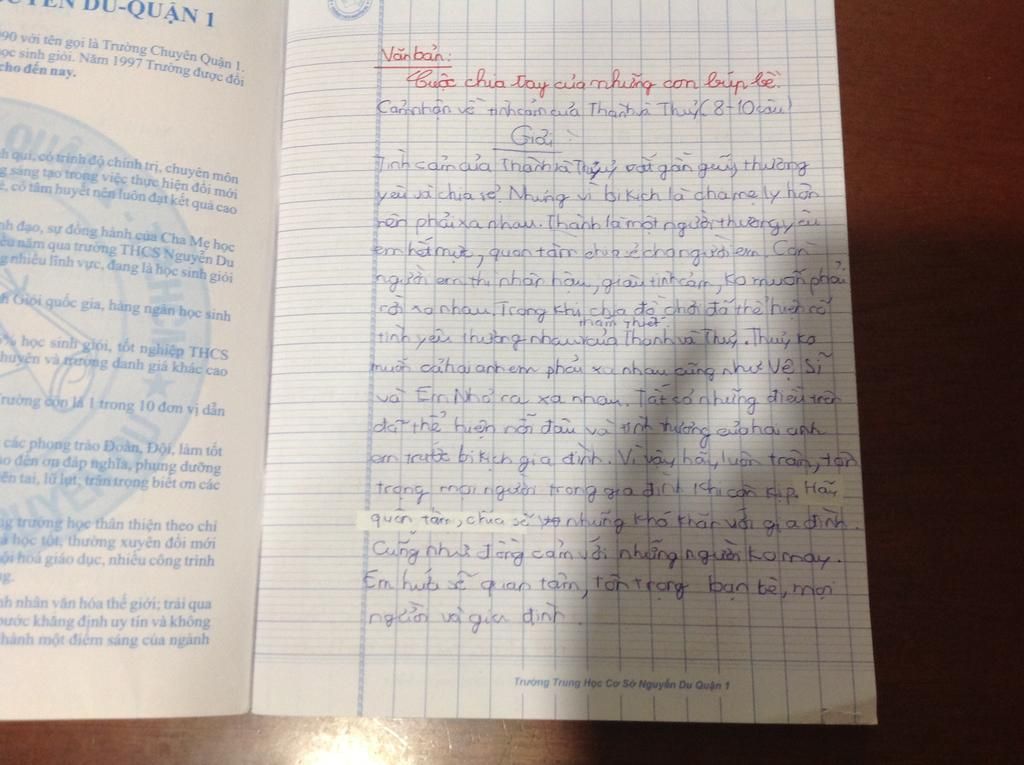 UYỄN DU-QUẬN 1
90 với tên gọi là Trường Chuyên Quận 1,
ọc sinh giỏi. Năm 1997 Trường được đổi
cho đến nay.
h qui, có trình độ chính trị, chuyên môn
g sáng tạo trong việc thực hiện đổi mới
ẻ, có tâm huyết nên luôn đạt kết quả cao
nh đạo, sự đồng hành của Cha Mẹ học
ều năm qua trường THCS Nguyễn Du
g nhiều lĩnh vực, đang là học sinh giỏi
h Giỏi quốc gia, hàng ngàn học sinh
% học sinh giỏi, tốt nghiệp THCS
huyên và trường danh giá khác cao
Trường còn là 1 trong 10 đơn vị dẫn
các phong trào Đoàn, Đội, làm tốt
ào đền ơn đáp nghĩa, phụng dưỡng
ên tai, lũ lụt, trân trọng biết ơn các
ng trường học thân thiện theo chỉ
à học tốt, thường xuyên đổi mới
ội hoá giáo dục, nhiều công trình
g.
nh nhân văn hóa thế giới; trải qua
bước khẳng định uy tín và không
hành một điểm sáng của ngành
Văn bản:
Cuộc chia tay của những con búp bê.
Cảm nhận về tình cảm của Thành và Thuỷ. (8-10 câu)
Giải:
Tình cảm của Thành và Thuỷ rất gần guỹ, thương
yêu và chia sẻ. Nhưng vì bi kịch là cha mẹ ly hôn
nên phải xa nhau. Thành là một người thương yêu
em hết mực, quan tâm chia sẻ cho người em. Còn
người em thì nhân hậu, giàu tình cảm, ko muốn phải
rời xa nhau. Trong khi chia đồ chơi đã thể hiện rõ
thắm thiết
tình yêu thương nhau của Thành và Thuỷ. Thuỷ ko
muốn cả hai anh em phải xa nhau cũng như Vệ Sĩ
và Em Nhỏ ra xa nhau. Tất cả những điều trên
đã thể hiện nỗi đau và tình thương của hai anh
em trước bi kịch gia đình. Vì vậy, hãy luôn trân, tôn
trọng mọi người trong gia đình khi còn kịp. Hãy
quan tâm, chia sẽ những khó khăn với gia đình.
Cũng như đồng cảm với những người ko may.
Em hứa sẽ quan tâm, tôn trọng bạn bè, mọi
người và gia đình.
Trường Trung Học Cơ Sở Nguyễn Du Quận 1